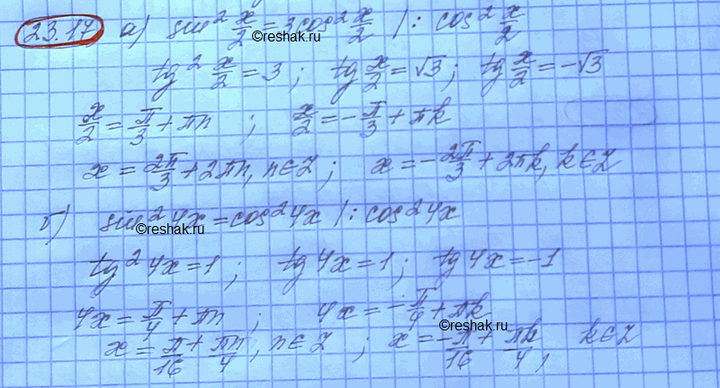 23.17 а) sin² x/2 = 3cos² x/2 |: cos² x/2
©reshak.ru
tg² x/2 = 3 ; tg x/2 = √3 ; tg x/2 = -√3
x/2 = π/3 + πn ; x/2 = -π/3 + πk
x = 2π/3 + 2πn, n∈Z ; x = -2π/3 + 2πk, k∈Z
б) sin² 4x = cos² 4x |: cos² 4x
©reshak.ru
tg² 4x = 1 ; tg 4x = 1 ; tg 4x = -1
4x = π/4 + πn ; 4x = -π/4 + πk
©reshak.ru
x = π/16 + πn/4, n∈Z ; x = -π/16 + πk/4, k∈Z